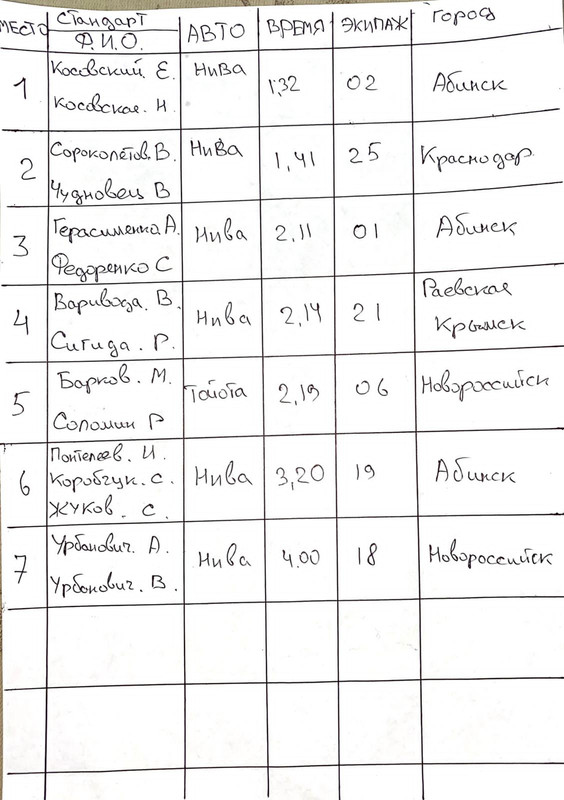 МЕСТО Стандарт Ф.И.О. АВТО ВРЕМЯ ЭКИПАЖ ГОРОД
1 Косовский. Е. Нива 1,32 02 Абинск
Косовская. Н.
2 Сороколетов. В. Нива 1,41 25 Краснодар
Чудновец В
3 Герасименко А. Нива 2,11 01 Абинск
Федоренко С
4 Варивода. В. Нива 2,14 21 Раевская
Сигида. Р. Крымск
5 Барков. М. Тойота 2,19 06 Новороссийск
Соломин Р
6 Понтелеев. И. Нива 3,20 19 Абинск
Коробчук. С.
Жуков. С.
7 Урбанович. А. Нива 4.00 18 Новороссийск
Урбанович. В.